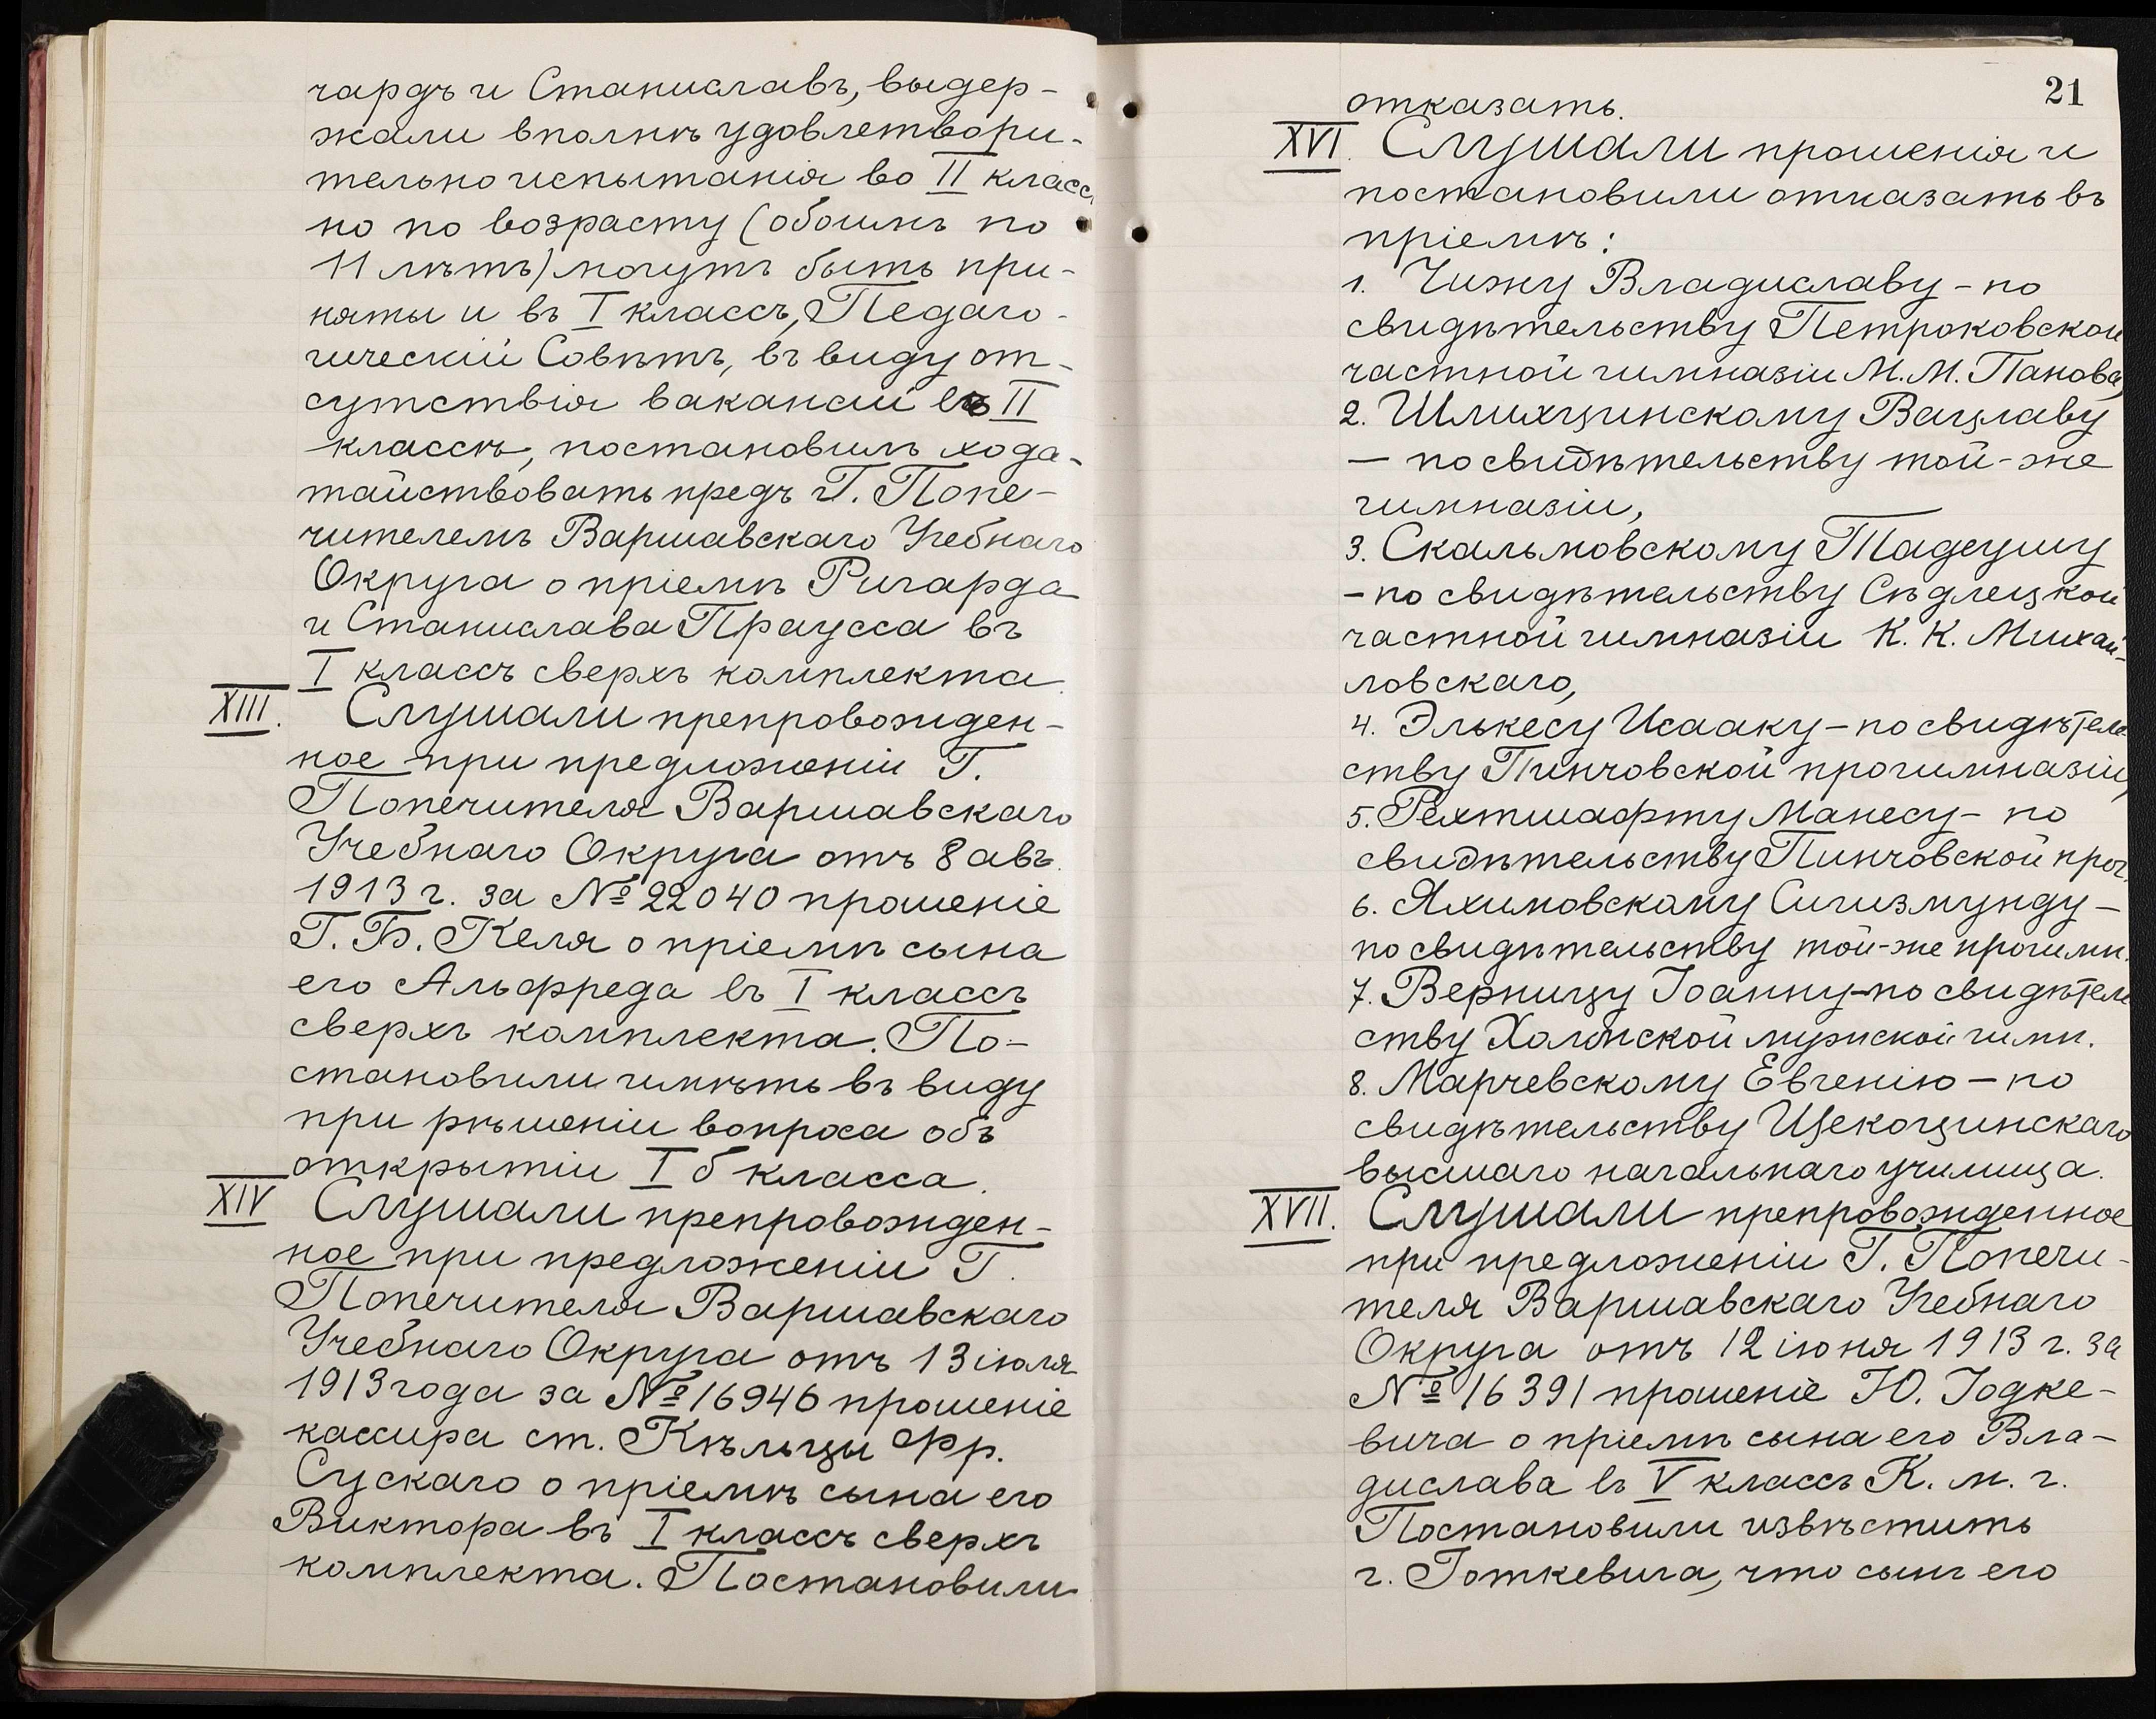 чардъ и Станиславъ, выдер-
жали вполнѣ удовлетвори-
тельно испытанія во II классъ,
но по возрасту (обоимъ по
11 лѣтъ) могутъ быть при-
няты и въ I классъ, Педаго-
гическій Совѣтъ, въ виду от-
сутствія вакансій во II
классѣ, постановилъ хода-
тайствовать предъ Г. Попе-
чителемъ Варшавскаго Учебнаго
Округа о пріемѣ Ричарда
и Станислава Праусса въ
I классъ сверхъ комплекта.
XIII. Слушали препровожден-
ное при предложеніи Г.
Попечителя Варшавскаго
Учебнаго Округа отъ 8 авг.
1913 г. за № 22040 прошеніе
Г. Б. Келя о пріемѣ сына
его Альфреда въ I классъ
сверхъ комплекта. По-
становили имѣть въ виду
при рѣшеніи вопроса объ
открытіи I б класса.
XIV Слушали препровожден-
ное при предложеніи Г.
Попечителя Варшавскаго
Учебнаго Округа отъ 13 іюля
1913 года за № 16946 прошеніе
кассира ст. Кѣльцы Фр.
Сускаго о пріемѣ сына его
Виктора въ I классъ сверхъ
комплекта. Постановили
21
отказать.
XVI. Слушали прошенія и
постановили отказать въ
пріемѣ:
1. Чижу Владиславу - по
свидѣтельству Петроковской
частной гимназіи М. М. Панова,
2. Шлихцинскому Вацлаву
— по свидѣтельству той-же
гимназіи,
3. Скальмовскому Тадеушу
- по свидѣтельству Сѣдлецкой
частной гимназіи К. К. Михай-
ловскаго,
4. Элькесу Исааку - по свидѣтель-
ству Пинчовской прогимназіи,
5. Рехтшафту Манесу - по
свидѣтельству Пинчовской прог.
6. Яхимовскому Сигизмунду —
по свидѣтельству той-же прогимн.
7. Верницу Іоанну - по свидѣтель
ству Холмской мужской гимн.
8. Марчевскому Евгенію — по
свидѣтельству Щекоцинскаго
высшаго начальнаго училища.
XVII. Слушали препровожденное
при предложеніи Г. Попечи-
теля Варшавскаго Учебнаго
Округа отъ 12 іюня 1913 г. за
№ 16391 прошеніе Ю. Іодке-
вича о пріемѣ сына его Вла-
дислава въ V классъ К. м. г.
Постановили извѣстить
г. Іоткевича, что сынъ его